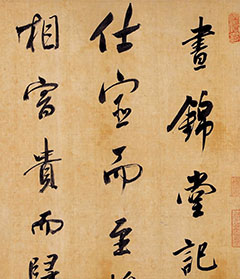 晝錦堂記
仕宦而至
相富貴而歸